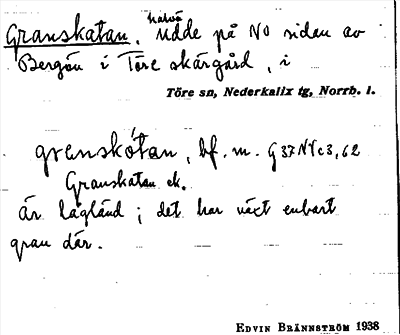 halvö
Granskatan. Udde på NO sidan av
Bergön i Töre skärgård, i
Töre sn, Nederkalix tg, Norrb. l.
granskótan, bf. m.
Granskatan ek.
är lågländ ; det har växt enbart
gran där.
EDVIN BRÄNNSTRÖM 1938